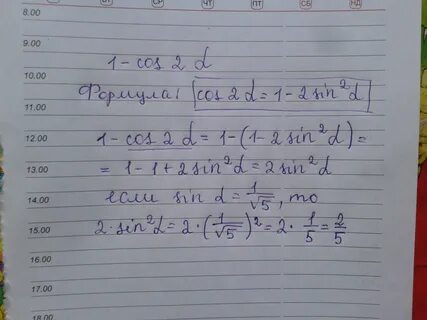 ВТ СР ЧТ ПТ СБ НД
8.00
9.00
1 - cos 2 α
10.00
Формула: cos 2 α = 1 - 2 sin² α
11.00
12.00 1 - cos 2 α = 1 - (1 - 2 sin² α) =
13.00 = 1 - 1 + 2 sin² α = 2 sin² α
14.00 если sin α = 1/√5, то
15.00 2 · sin² α = 2 · (1/√5)² = 2 · 1/5 = 2/5
16.00
17.00
18.00